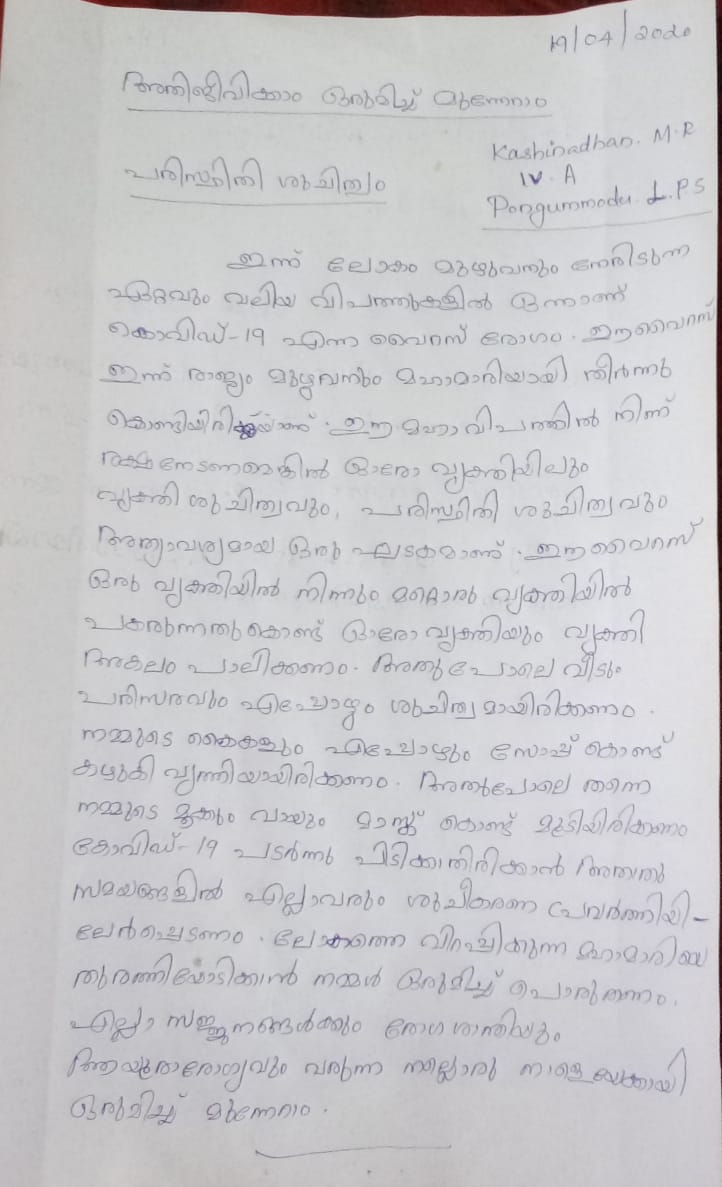 19/04/2020
അതിജീവിക്കാം ഒരുമിച്ച് മുന്നേറാം
Kashinadhan. M.R
പരിസ്ഥിതി ശുചിത്വം
IV. A
Pongummodu. L.P.S
ഇന്ന് ലോകം മുഴുവനും നേരിടുന്ന
ഏറ്റവും വലിയ വിപത്തുകളിൽ ഒന്നാണ്
കൊവിഡ്-19 എന്ന വൈറസ് രോഗം. ഈ വൈറസ്
ഇന്ന് രാജ്യം മുഴുവനും മഹാമാരിയായി തീർന്നു
കൊണ്ടിയിരിക്കുയാണ്. ഈ മഹാവിപത്തിൽ നിന്ന്
രക്ഷനേടണമെങ്കിൽ ഓരോ വ്യക്തിയിലും
വ്യക്തി ശുചിത്വവും, പരിസ്ഥിതി ശുചിത്വവും
അത്യാവശ്യമായ ഒരു ഘടകമാണ്. ഈ വൈറസ്
ഒരു വ്യക്തിയിൽ നിന്നും മറ്റൊരു വ്യക്തിയിൽ
പകരുന്നതുകൊണ്ട് ഓരോ വ്യക്തിയും വ്യക്തി
അകലം പാലിക്കണം. അതുപോലെ വീടും
പരിസരവും എപ്പോഴും ശുചിത്വമായിരിക്കണം.
നമ്മുടെ കൈകളും എപ്പോഴും സോപ്പ് കൊണ്ട്
കഴുകി വൃത്തിയായിരിക്കണം. അതുപോലെ തന്നെ
നമ്മുടെ മൂക്കും വായും മാസ്ക്ക് കൊണ്ട് മൂടിയിരിക്കണം
കോവിഡ്-19 പടർന്നു പിടിക്കാതിരിക്കാൻ അതാതു
സമയങ്ങളിൽ എല്ലാവരും ശുചീകരണ പ്രവർത്തിയി-
ലേർപ്പെടണം. ലോകത്തെ വിറപ്പിക്കുന്ന മഹാമാരിയെ
തുരത്തിയോടിക്കാൻ നമ്മൾ ഒരുമിച്ച് പൊരുതണം.
എല്ലാ സജ്ജനങ്ങൾക്കും രോഗശാന്തിയും
ആയുരാരോഗ്യവും വരുന്ന നല്ലൊരു നാളെയ്ക്കായി
ഒരുമിച്ച് മുന്നേറാം.